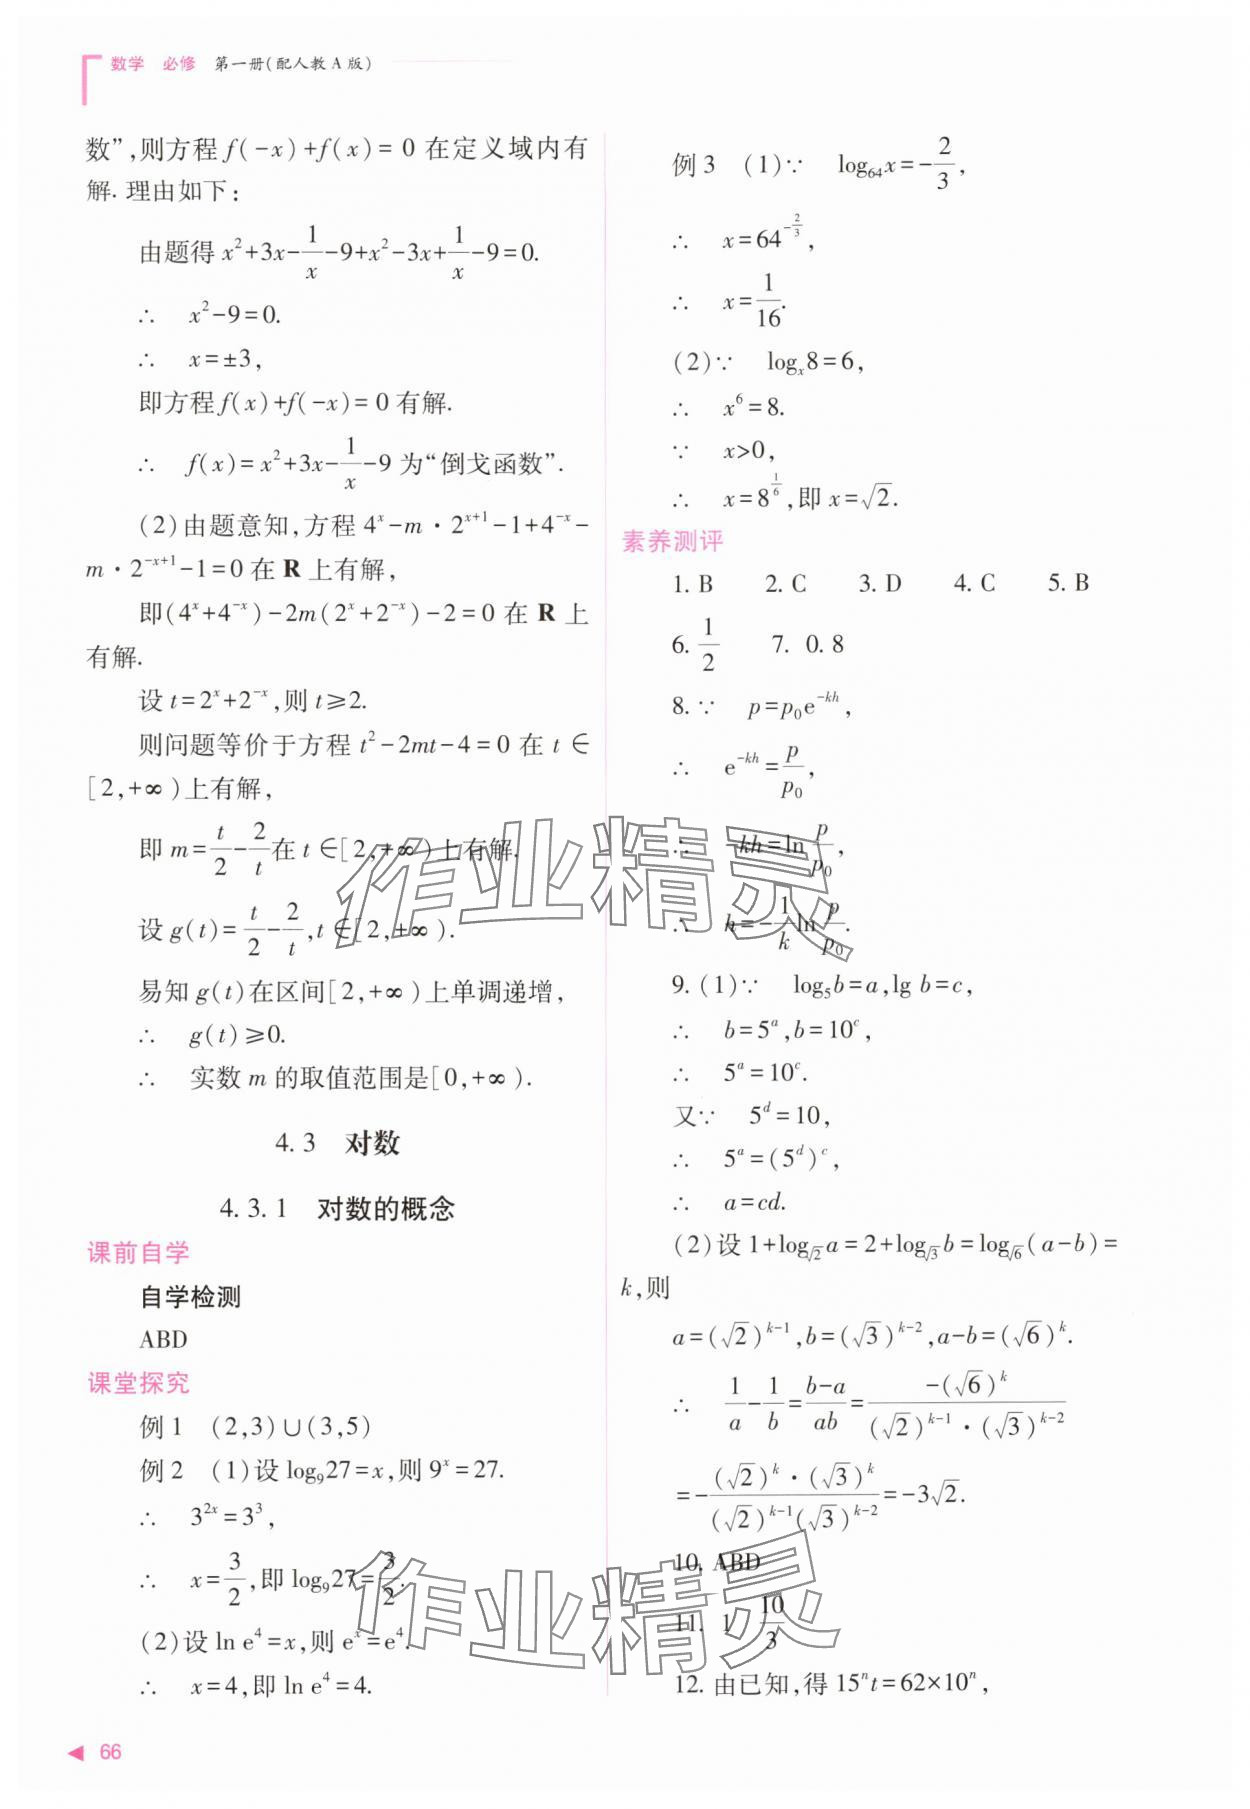 数学 必修 第一册(配人教 A 版)
数”,则方程 f(-x)+f(x)=0 在定义域内有
解. 理由如下:
由题得 x²+3x-1/x-9+x²-3x+1/x-9=0.
∴ x²-9=0.
∴ x=±3,
即方程 f(x)+f(-x)=0 有解.
∴ f(x)=x²+3x-1/x-9 为“倒戈函数”.
(2)由题意知,方程 4^x-m·2^{x+1}-1+4^{-x}-
m·2^{-x+1}-1=0 在 R 上有解,
即(4^x+4^{-x})-2m(2^x+2^{-x})-2=0 在 R 上
有解.
设 t=2^x+2^{-x},则 t≥2.
则问题等价于方程 t²-2mt-4=0 在 t∈
[2,+∞)上有解,
即 m=t/2-2/t在 t∈[2,+∞)上有解.
设 g(t)=t/2-2/t,t∈[2,+∞).
易知 g(t)在区间[2,+∞)上单调递增,
∴ g(t)≥0.
∴ 实数 m 的取值范围是[0,+∞).
4.3 对数
4.3.1 对数的概念
课前自学
自学检测
ABD
课堂探究
例 1 (2,3)∪(3,5)
例 2 (1)设 log₉27=x,则 9^x=27.
∴ 3^{2x}=3³,
∴ x=3/2,即 log₉27=3/2.
(2)设 ln e⁴=x,则 e^x=e⁴.
∴ x=4,即 ln e⁴=4.
例 3 (1)∵ log₆₄x=-2/3,
∴ x=64^{-2/3},
∴ x=1/16.
(2)∵ log_x 8=6,
∴ x⁶=8.
∵ x>0,
∴ x=8^{1/6},即 x=√2.
素养测评
1. B 2. C 3. D 4. C 5. B
6. 1/2 7. 0.8
8. ∵ p=p₀e^{-kh},
∴ e^{-kh}=p/p₀,
∴ -kh=ln p/p₀,
∴ h=-1/k ln p/p₀.
9. (1)∵ log₅b=a,lg b=c,
∴ b=5^a,b=10^c,
∴ 5^a=10^c.
又∵ 5^d=10,
∴ 5^a=(5^d)^c,
∴ a=cd.
(2)设 1+log_{√2}a=2+log_{√3}b=log_{√6}(a-b)=
k,则
a=(√2)^{k-1},b=(√3)^{k-2},a-b=(√6)^k.
∴ 1/a-1/b=(b-a)/ab=-(√6)^k/((√2)^{k-1}·(√3)^{k-2})
=-((√2)^k·(√3)^k)/((√2)^{k-1}(√3)^{k-2})=-3√2.
10. ABD
11. 1 10/3
12. 由已知,得 15^n t=62×10^n,
66
作业精灵
作业精灵